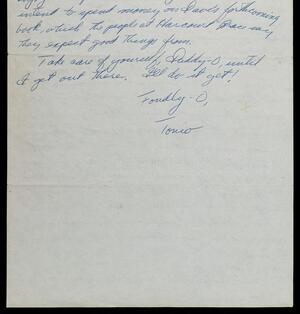 intend to spend money on Dave's forthcoming
book, which the people at Harcourt Brace say
they expect good things from.
Take care of yourself, Daddy-O, until
I get out there. I'll do it yet!
Fondly-O,